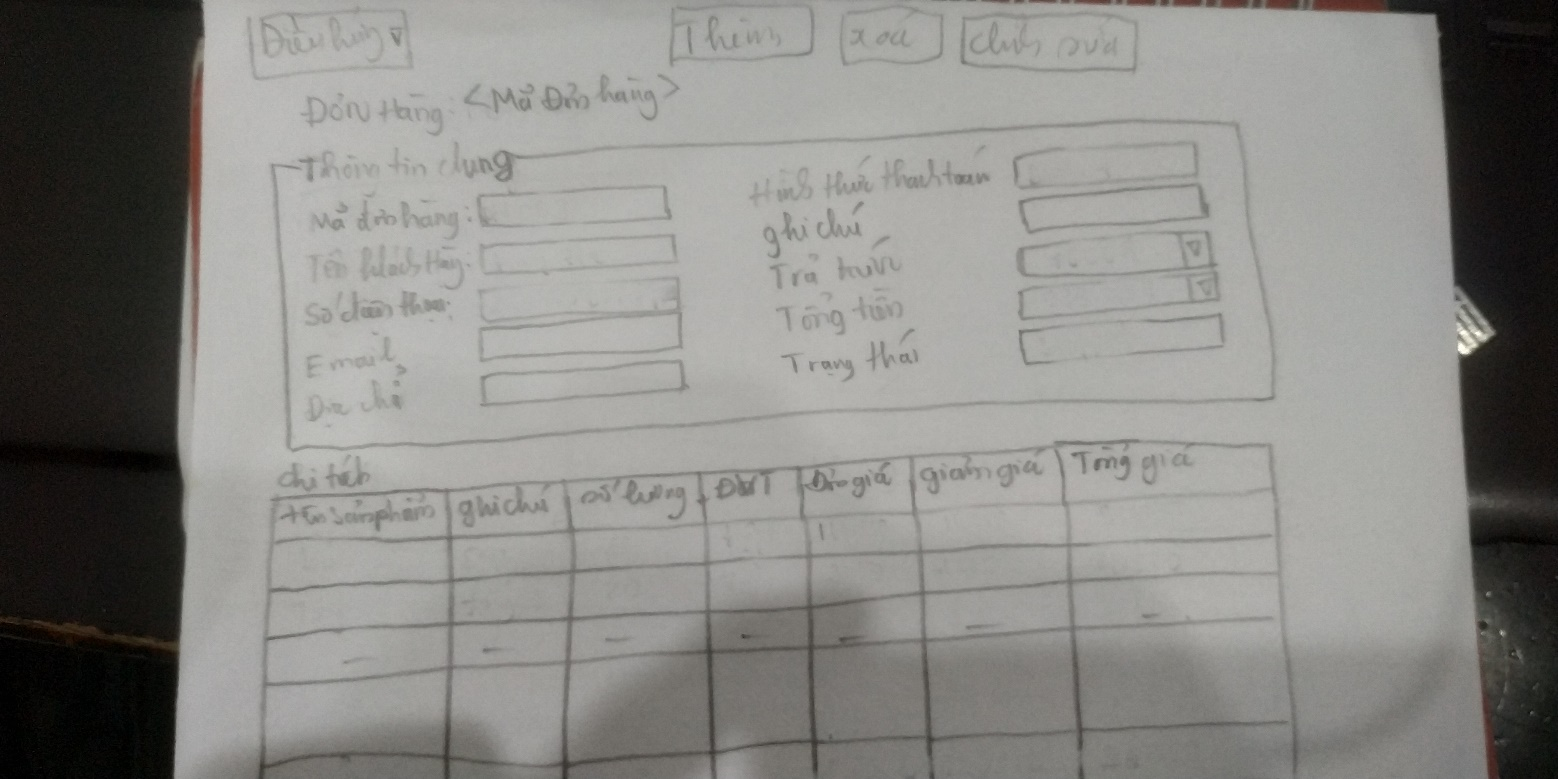 Điều hướng Thêm xoá chỉnh sửa
Đơn Hàng: <Mã Đơn hàng>
Thông tin chung
Mã đơn hàng:
Tên khách Hàng:
Số điện thoại:
Email
Địa chỉ
Hình thức thanh toán
ghi chú
Trả trước
Tổng tiền
Trạng thái
chi tiết
tên sản phẩm ghi chú số lượng ĐVT Đơn giá giảm giá Tổng giá